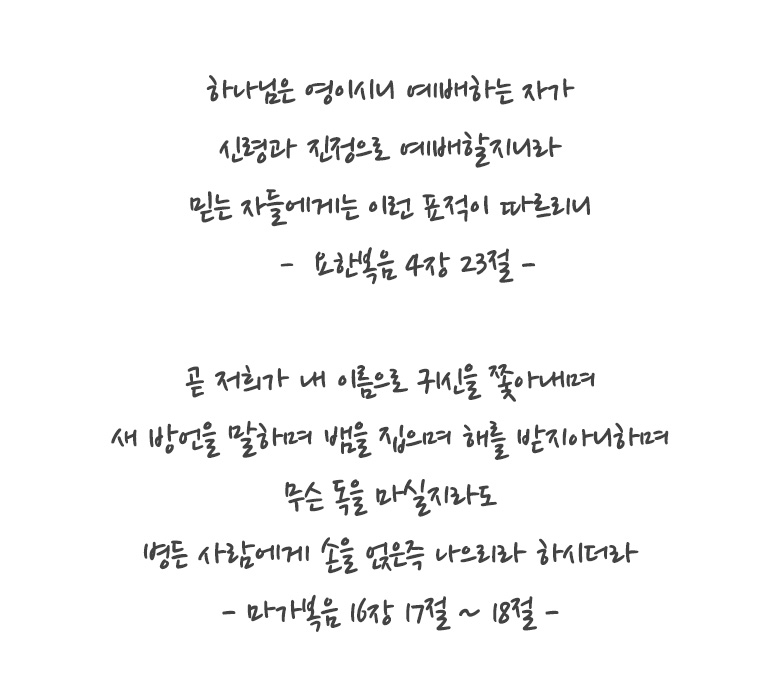 하나님은 영이시니 예배하는 자가
신령과 진정으로 예배할지니라
믿는 자들에게는 이런 표적이 따르리니
- 요한복음 4장 23절 -
곧 저희가 내 이름으로 귀신을 쫓아내며
새 방언을 말하며 뱀을 집으며 해를 받지아니하며
무슨 독을 마실지라도
병든 사람에게 손을 얹은즉 나으리라 하시더라
- 마가복음 16장 17절 ~ 18절 -